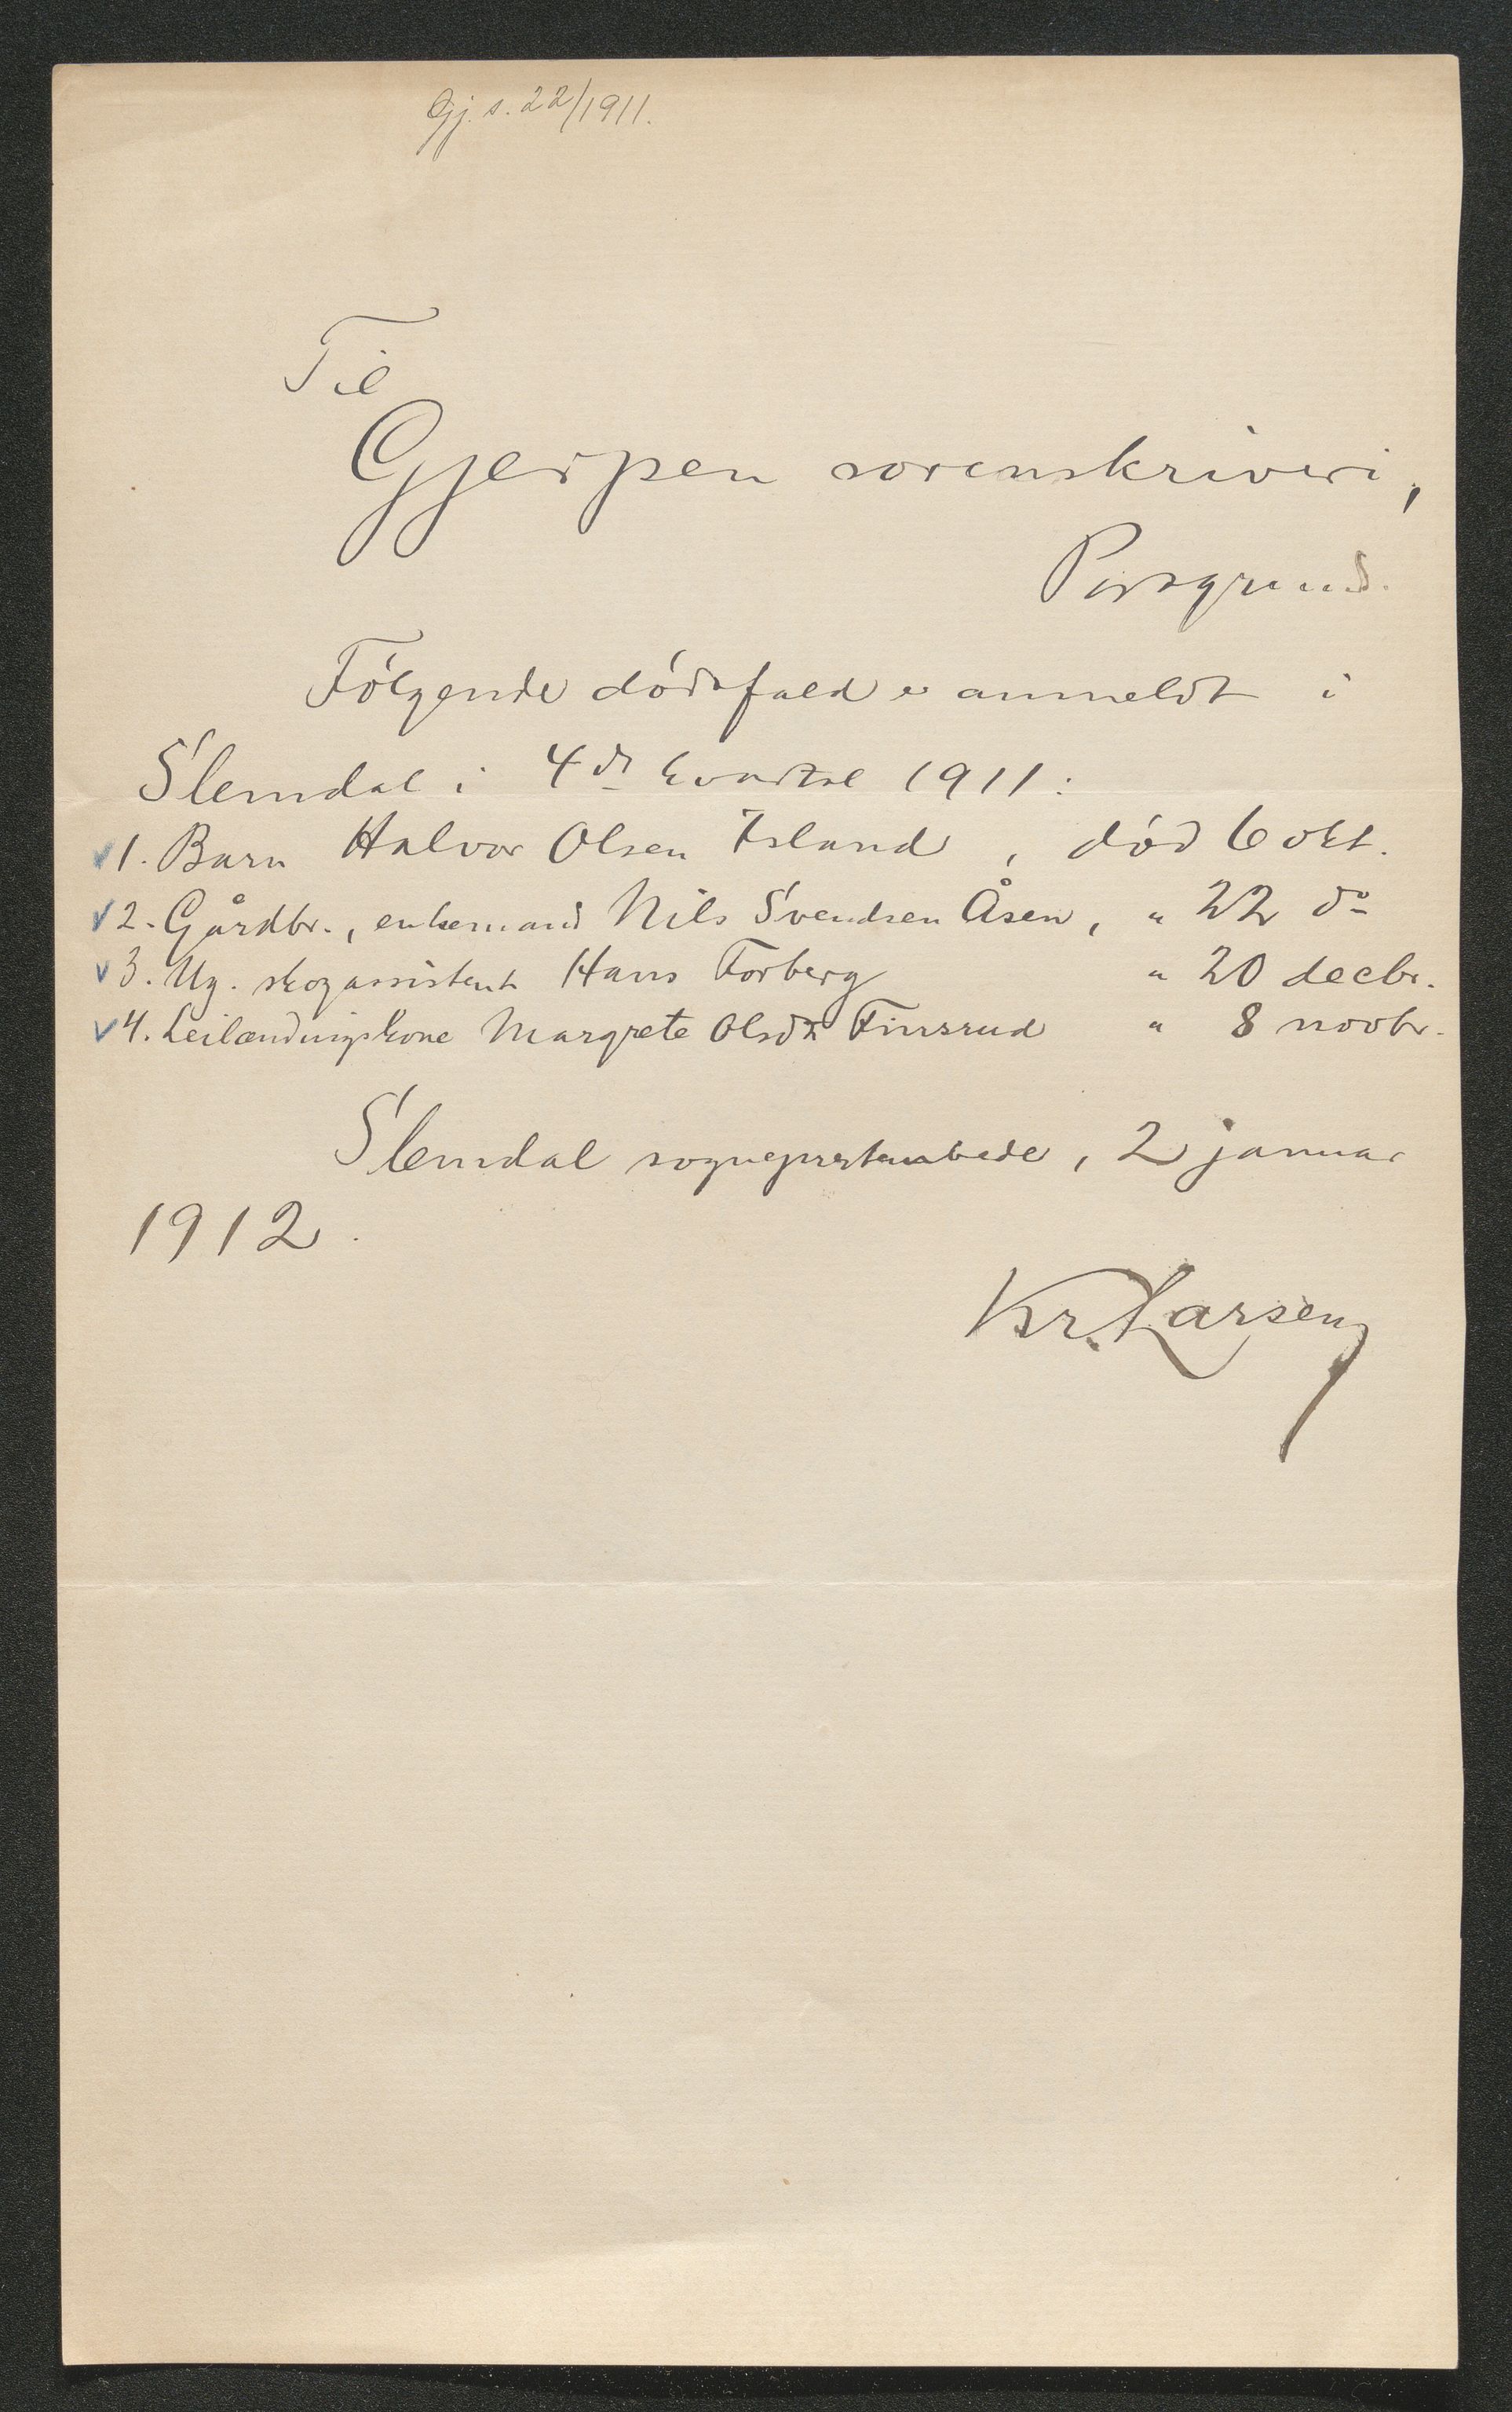 Gj. s. 22/1911.
Til
Gjerpen sorenskriveri,
Porsgrund.
Følgende dødsfald er anmeldt i
Slemdal i 4de kvartal 1911:
✓ 1. Barn Halvor Olsen Island, død 6 okt.
✓ 2. Gårdbr., enkemand Nils Svendsen Åsen, " 22 do
✓ 3. Ug. skogassistent Hans Forberg " 20 decbr.
✓ 4. Leilændingskone Margrete Olsdtr Finsrud " 8 novbr.
Slemdal sogneprestembede, 2 januar
1912.
Kr. Larsen